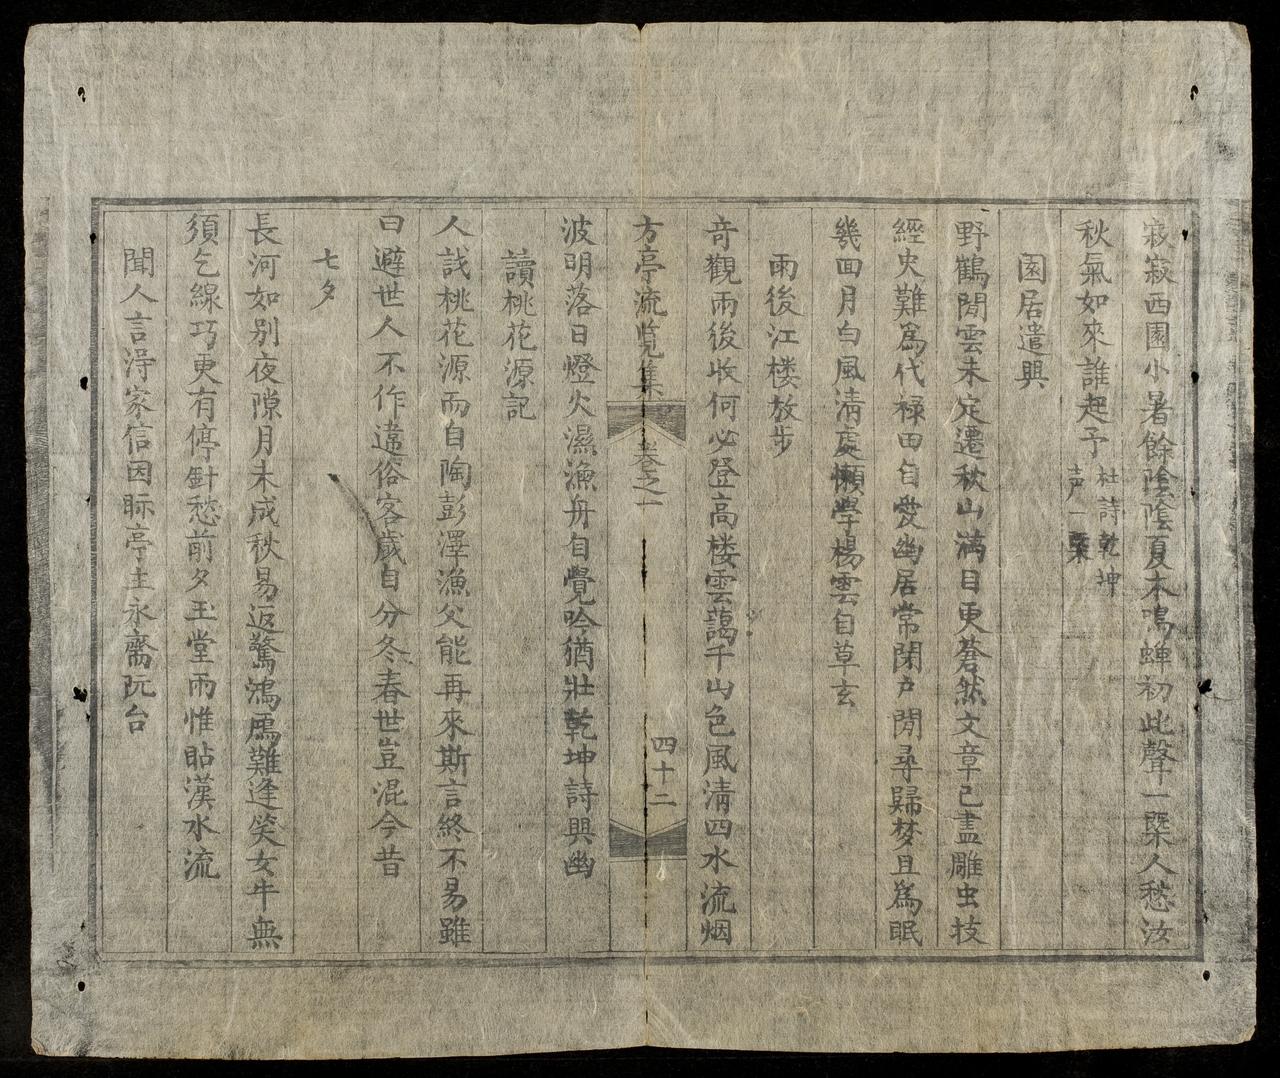 寂寂西園小暑餘陰陰夏木鳴蟬初此聲一槩人愁汝
秋氣如來誰起予
杜詩乾坤
士声一槩
園居遣興
野鶴閒雲未定遷秋山滿目更蒼然文章已盡雕虫技
經史難爲代祿田自愛幽居常閉戶閒尋歸梦且爲眠
幾回月白風淸處懶學楊雲自草玄
雨後江楼放步
奇觀雨後收何必登高楼雲藹千山色風清四水流烟
方亭流覧集
卷之一
四十二
波明落日燈火濕漁舟自覺吟猶壯乾坤詩興幽
讀桃花源記
人說桃花源而自陶彭澤漁父能再來斯言終不易雖
曰避世人不作違俗客歲自分冬春世豈混今昔
七夕
長河如别夜隙月未成秋易返驚鴻鴈難逢笑女牛無
須乞線巧更有停針愁前夕玉堂雨惟貼漢水流
聞人言淂家信因眎亭主永齋阮台